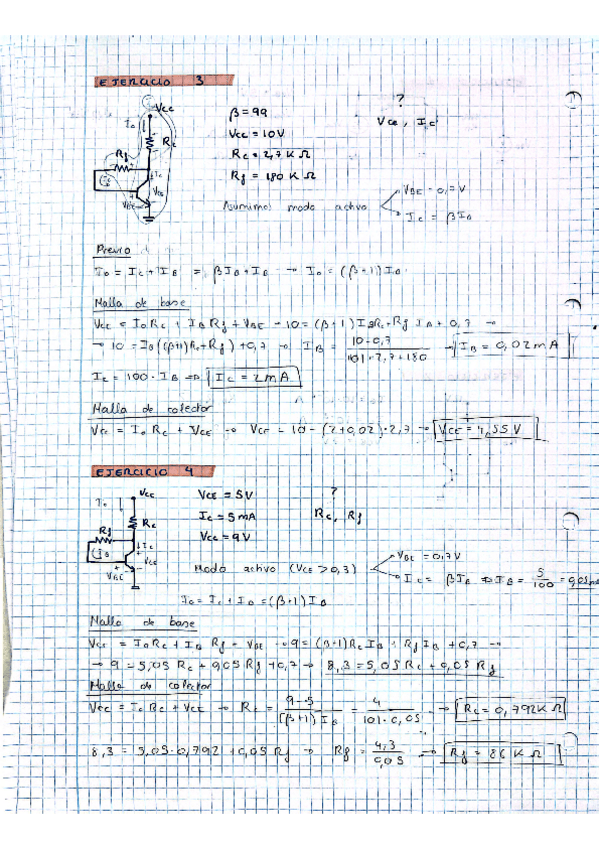 EJERCICIO 3
Vcc
Ic
Rc
Rf
Ic
VCE
VBE
β = 99
Vcc = 10V
Rc = 2,7 KΩ
Rf = 180 KΩ
?
VCE, Ic
Asumimos modo activo
VBE = 0,7V
Ic = βIB
Previo
Io = Ic + IB = βIB + IB → Io = (β+1) IB
Malla de base
Vcc = IoRc + IBRf + VBE → 10 = (β+1) IBRc + Rf IB + 0,7 →
→ 10 = IB((β+1)Rc + Rf) + 0,7 → IB = 10-0,7 / 101·2,7+180 → IB = 0,02mA
Ic = 100·IB ⇒ Ic = 2mA
Malla de colector
Vcc = Io Rc + VCE → VCE = 10 - (2+0,02)·2,7 → VCE = 4,55V
EJERCICIO 4
Vcc
Io
Rc
Rf
Ic
IB
VCE
VBE
VCE = 5V
Ic = 5mA
Vcc = 9V
?
Rc, Rf
Modo activo (VCE > 0,3)
VBE = 0,7V
Ic = βIB ⇒ IB = 5/100 = 0,05mA
Io = Ic + IB = (β+1) IB
Malla de base
Vcc = IoRc + IB Rf + VBE → 9 = (β+1)Rc IB + Rf IB + 0,7 →
→ 9 = 5,05 Rc + 0,05 Rf + 0,7 → 8,3 = 5,05 Rc + 0,05 Rf
Malla de colector
Vcc = Io Rc + VCE → Rc = 9-5 / (β+1) IB = 4 / 101·0,05 → Rc = 0,792KΩ
8,3 = 5,05·0,792 + 0,05 Rf → Rf = 4,3 / 0,05 → Rf = 86 KΩ